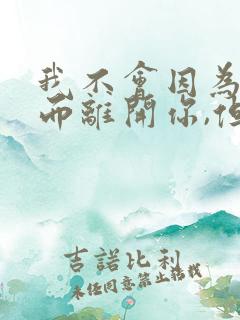 我不會因為
而離開你,但
吉諾比利
未經同意禁止搭訕